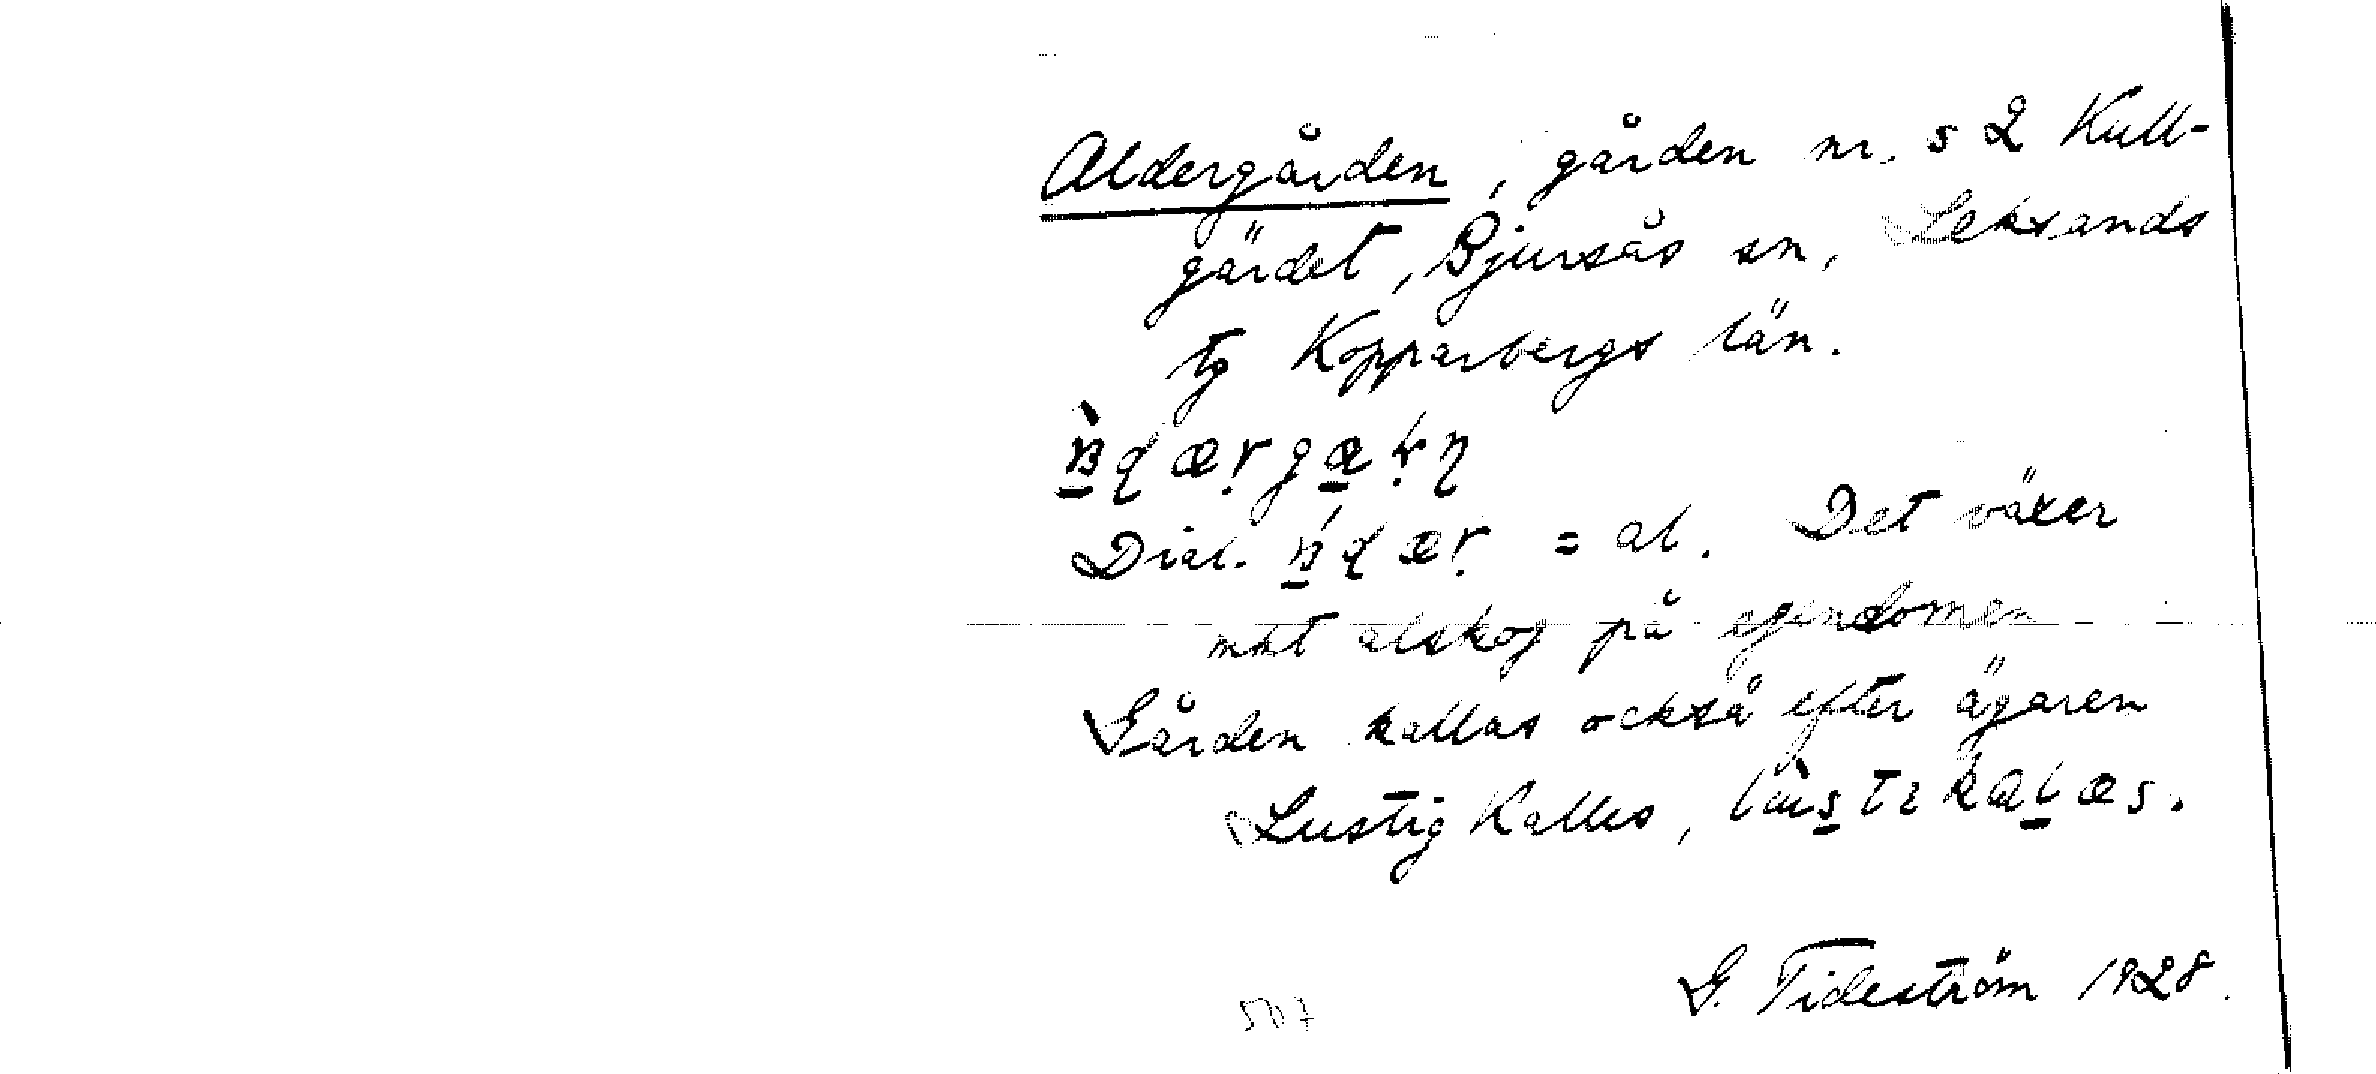 Aldergården, gården nr. 52 Kull-
gärdet, Bjursås sn, Leksands
tg Kopparbergs län.
Dial. = al. Det växer
mkt alskog på egendomen
Gården kallas också efter ägaren
Lustig Kalles,
G. Tideström 1928.
507